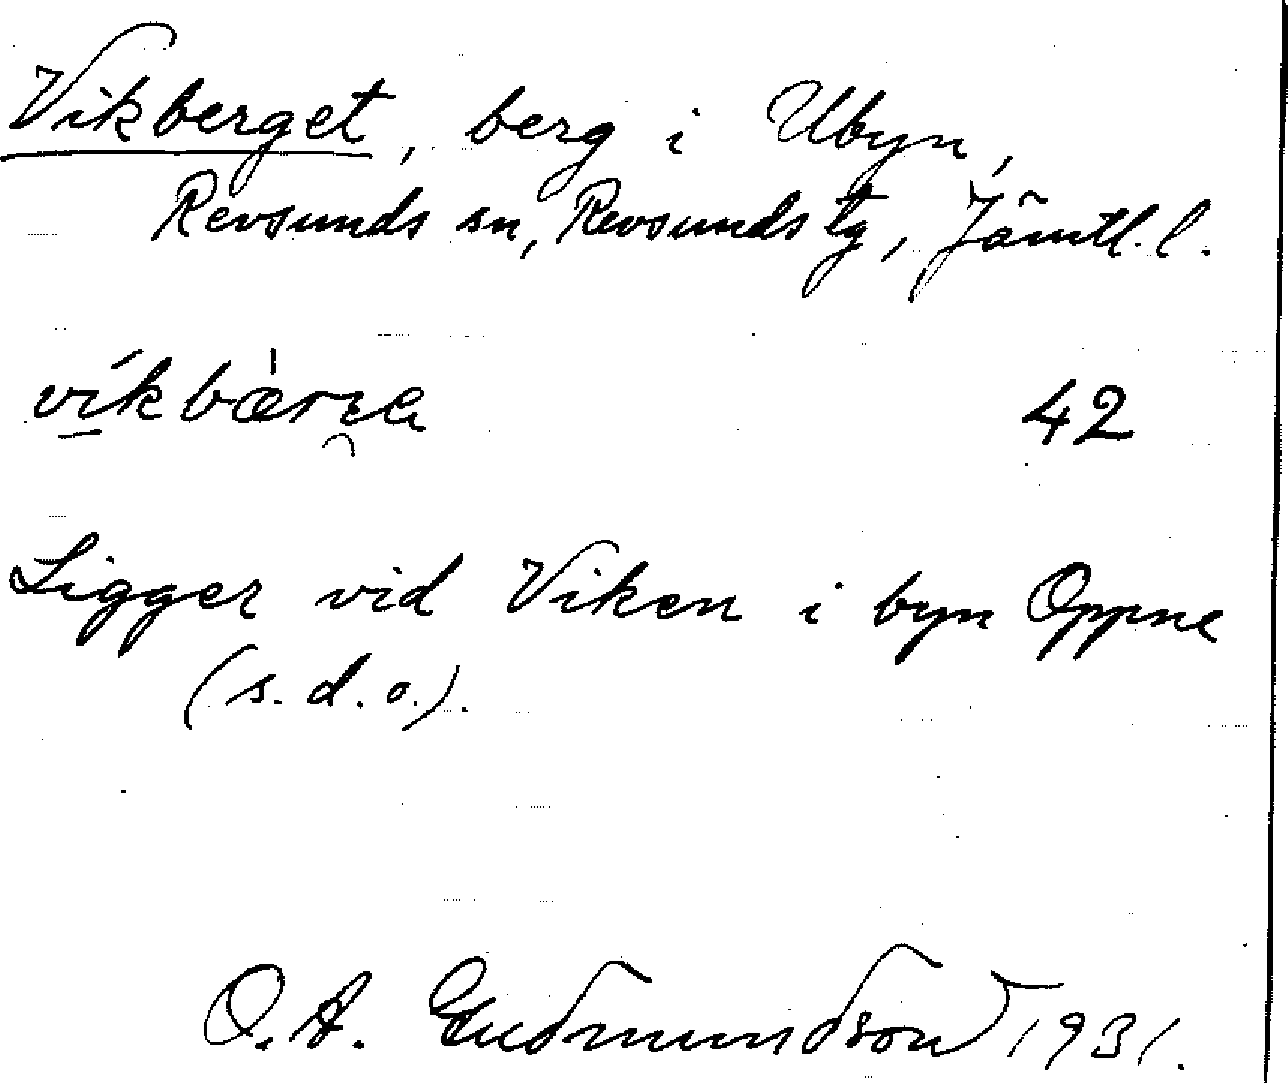 Vikberget, berg i Ubyn,
Revsunds sn, Revsunds tg, Jämtl. l.
42
Ligger vid Viken i byn Oppne
(s. d. o.).
O. A. Gudmundson 1931.